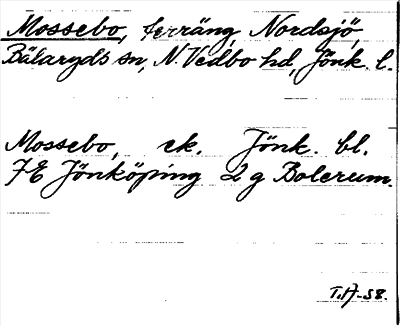 Mossebo, terräng, Nordsjö,
Bälaryds sn, N. Vedbo hd, Jönk. l.
Mossebo, ek. Jönk. bl.
7E Jönköping 2 g Bolerum.
T.H-58.